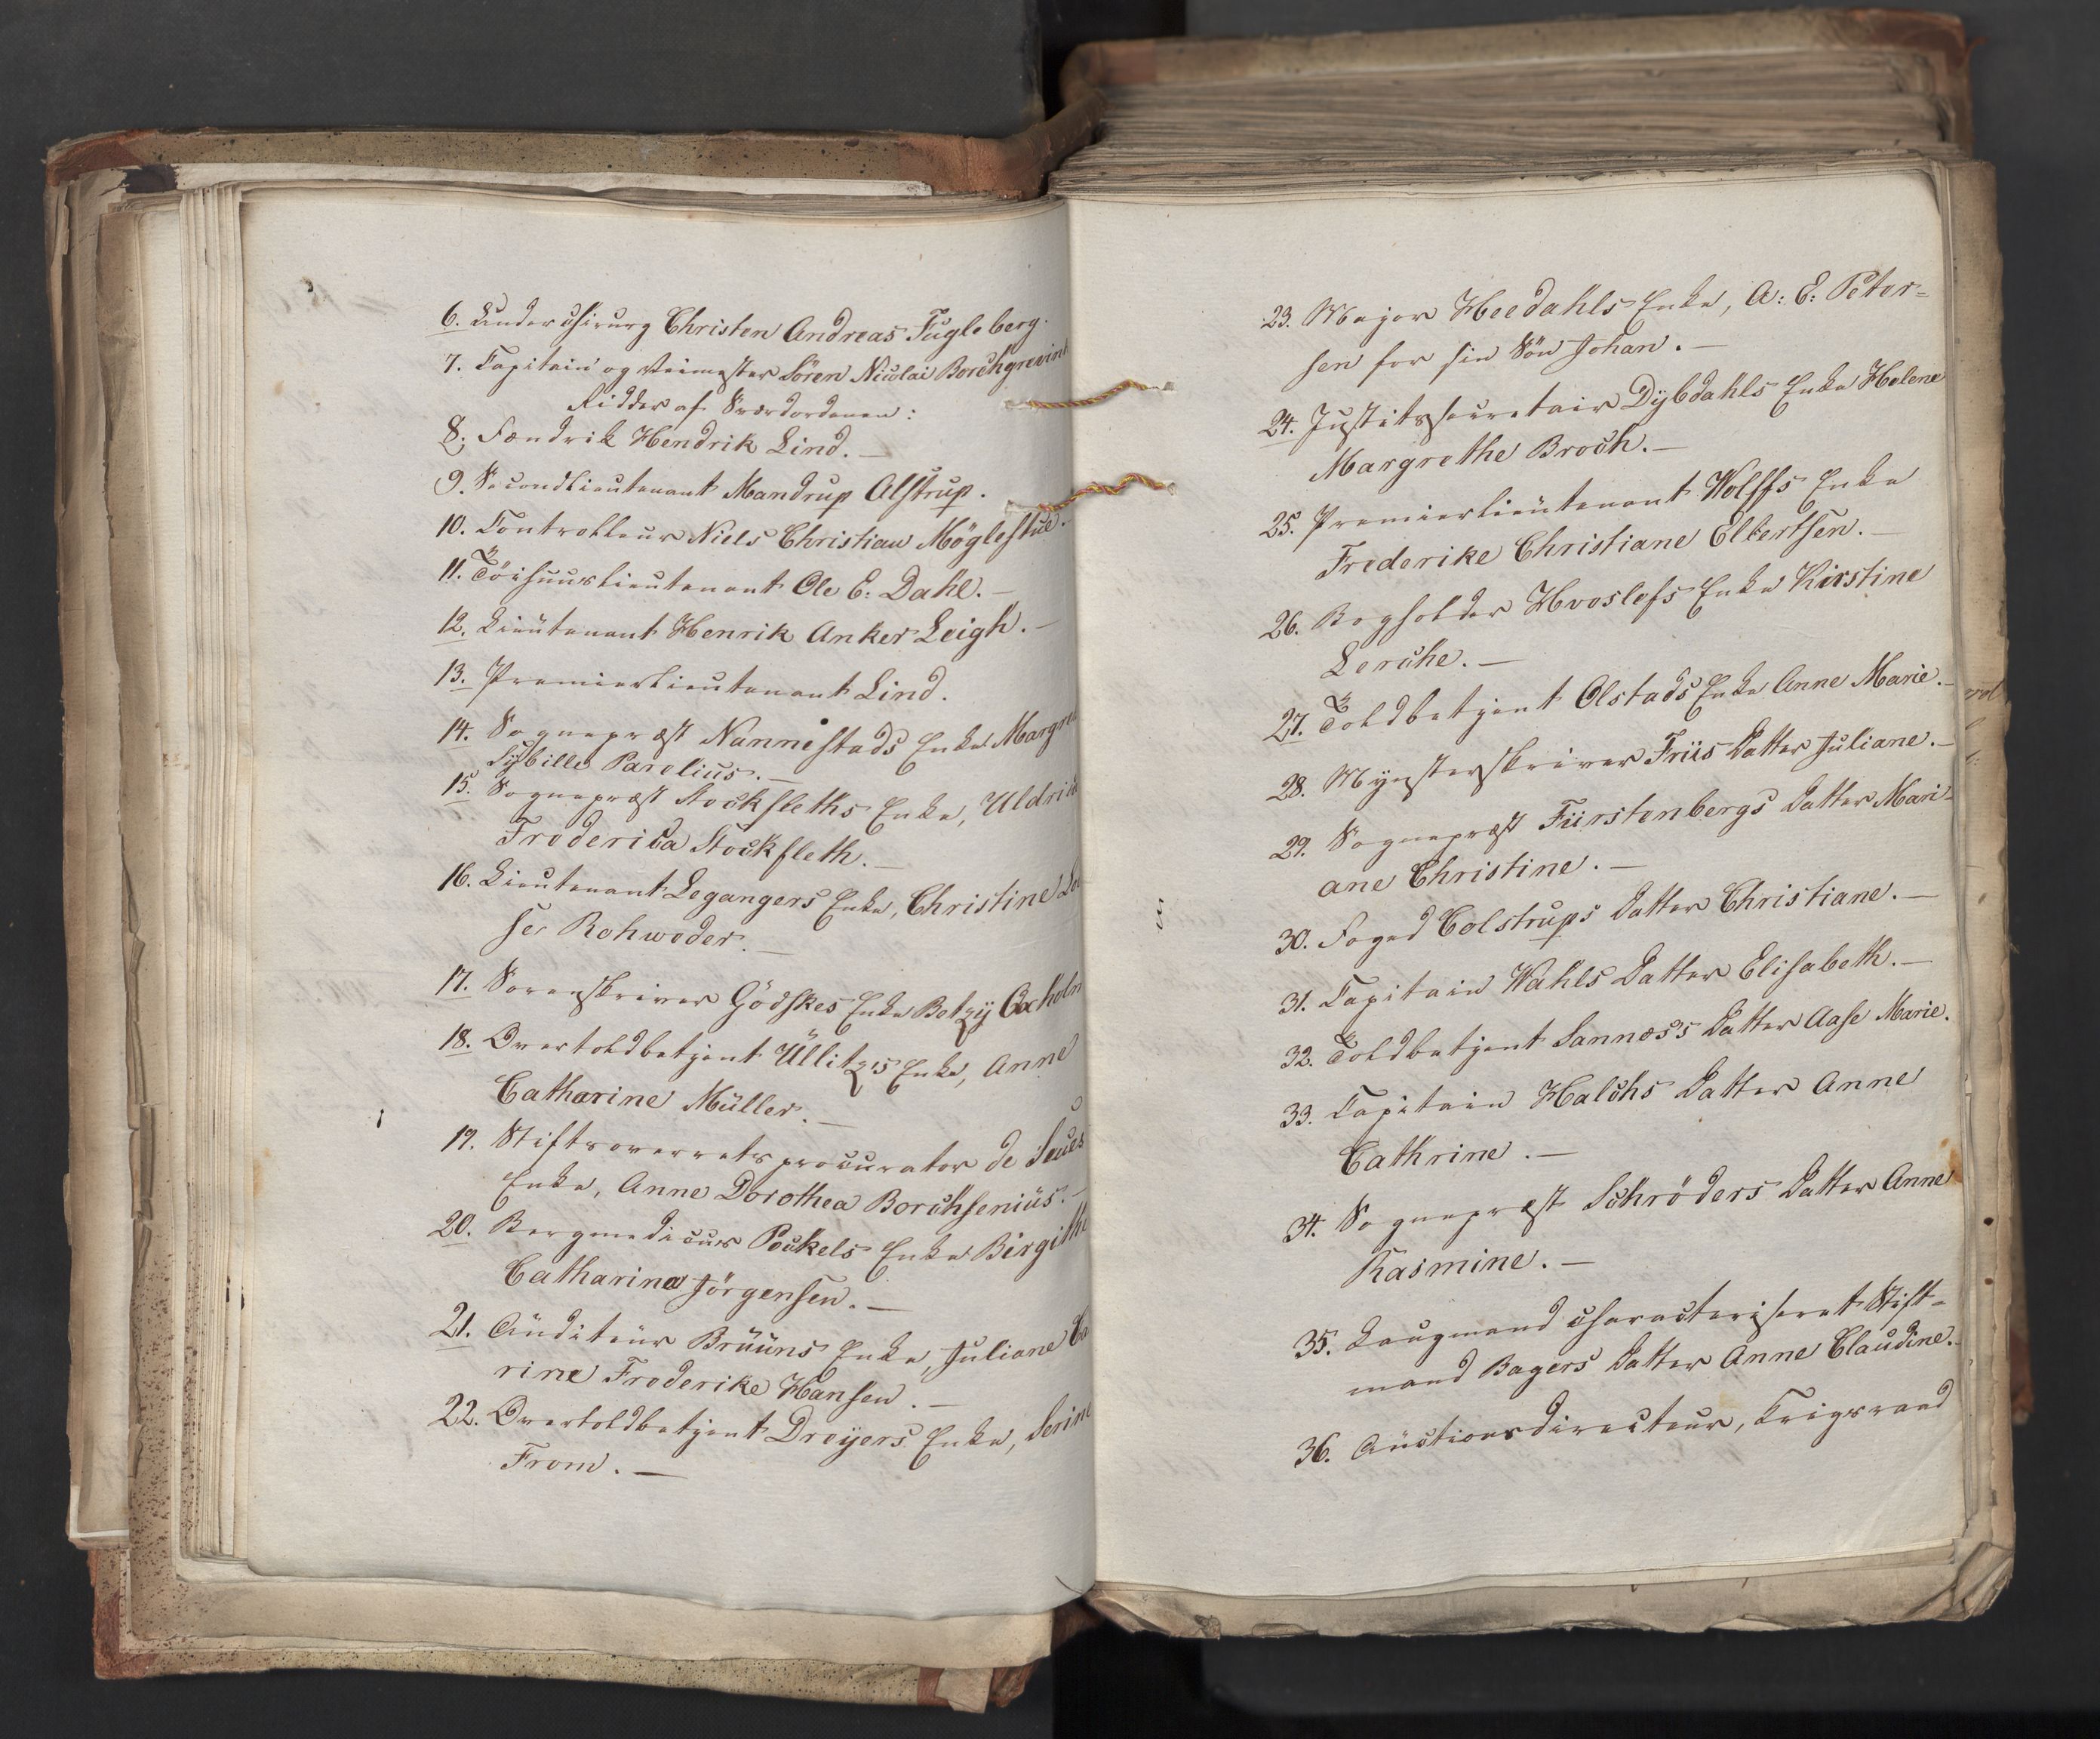 6. Underchirurg Christen Andreas Fugleberg.
7. Capitain og Veimester Sören Nicolai Borchgrevink
Ridder af Sværdordenen:
8. Fændrik Hendrik Lind. —
9. Secondlieutenant Mandrup Alstrup.
10. Controlleur Niels Christian Möglestue.
11. Töihuuslieutenant Ole E: Dahl. —
12. Lieutenant Henrik Anker Leigh. —
13. Premierlieutenant Lind.
14. Sognepræst Nannestads Enke Margre
Sybille Parelius. —
15. Sognepræst Stockfleths Enke, Uldrica
Frederica Stockfleth. —
16. Lieutenant Legangers Enke, Christine Lou
se Rohweder. —
17. Sorenskriver Gödskes Enke Betzÿ Coxholm
18. Overtoldbetjent Üllitz's Enke, Anne
Catharine Müller. —
19. Stiftsoverretsprocurator de Seues
Enke, Anne Dorothea Borchsenius. —
20. Bergmedicus Peckels Enke Birgithe
Catharina Jörgensen. —
21. Auditeur Bruuns Enke, Juliane Ca
rine Frederike Hansen. —
22. Overtoldbetjent Dreÿers Enke, Serine
From. —
23. Major Heedahls Enke, A: E: Peter=
sen for sin Sön Johan. —
24. Justitssecretair Dÿbdahls Enke Helene
Margrethe Broch. —
25. Premierlieutenant Wolffs Enke
Frederike Christiane Elbertsen. —
26. Bogholder Hvoslefs Enke Kirstine
Lerche. —
27. Toldbetjent Olstads Enke Anne Marie. —
28. Mÿnsterskriver Friis Datter Juliane. —
29. Sognepræst Fürstenbergs Datter Mari-
ane Christine. —
30. Foged Colstrups Datter Christiane. —
31. Capitain Wahls Datter Elisabeth. —
32. Toldbetjent Sannæs's Datter Aase Marie.
33. Capitain Halchs Datter Anne
Cathrine. —
34. Sognepræst Schröders Datter Anne
Rasmine. —
35. Laugmand characteriseret Stift-
mand Bagers Datter Anne Claudine.
36. Auctionsdirecteur, Krigsraad